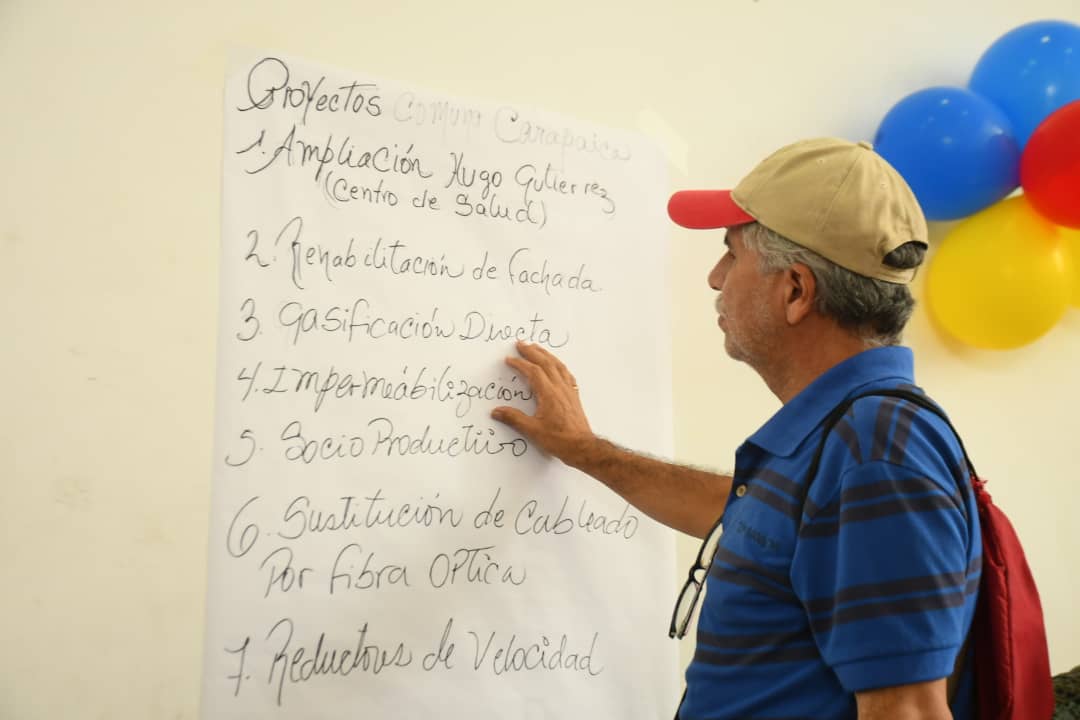 Proyectos Comuna Carapaica
1. Ampliación Hugo Gutierrez
(Centro de Salud)
2. Rehabilitación de fachada.
3. Gasificación Directa
4. Impermeabilización
5. Socio Productivo
6. Sustitución de Cableado
Por fibra Optica
7. Reductores de Velocidad